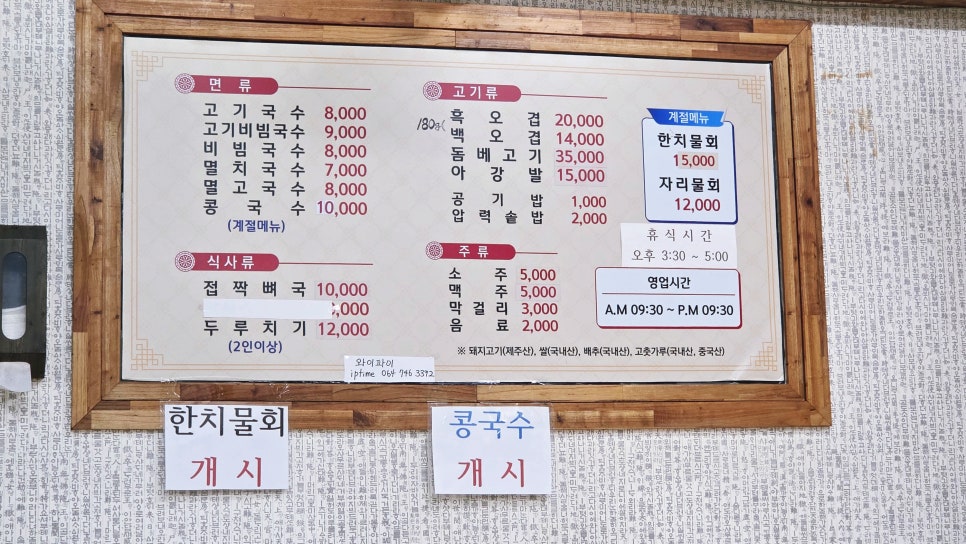 면 류
고기국수 8,000
고기비빔국수 9,000
비빔국수 8,000
멸치국수 7,000
멸고국수 8,000
콩국수 10,000
(계절메뉴)
식사류
접짝뼈국 10,000
,000
두루치기 12,000
(2인이상)
고기류
흑오겹 20,000
백오겹 14,000
돔베고기 35,000
아강발 15,000
공기밥 1,000
압력솥밥 2,000
주 류
소주 5,000
맥주 5,000
막걸리 3,000
음료 2,000
계절메뉴
한치물회
15,000
자리물회
12,000
휴 식 시 간
오후 3:30 ~ 5:00
영업시간
A.M 09:30 ~ P.M 09:30
※ 돼지고기(제주산), 쌀(국내산), 배추(국내산), 고춧가루(국내산, 중국산)
와이파이
iptime 064 746 3392
한치물회
개 시
콩국수
개 시